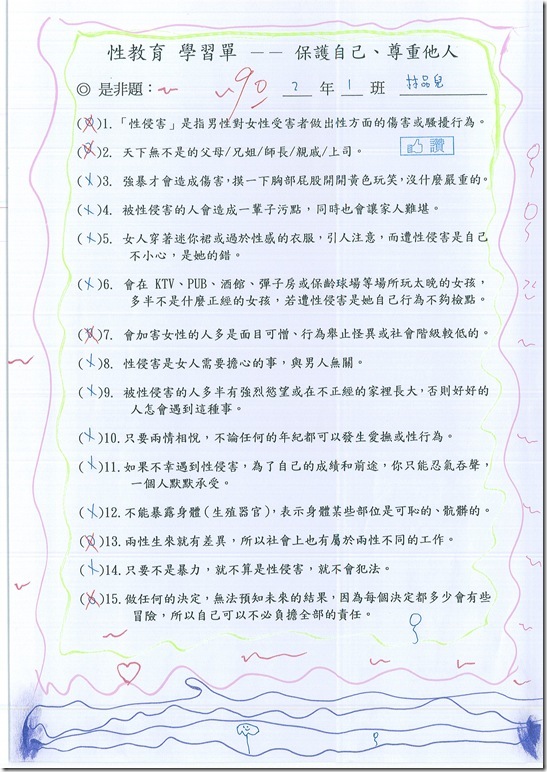 性教育 學習單 —— 保護自己、尊重他人
◎ 是非題： 90 2 年 1 班 林品兒
(X)1.「性侵害」是指男性對女性受害者做出性方面的傷害或騷擾行為。
(X)2. 天下無不是的父母/兄姐/師長/親戚/上司。 讚
(X)3. 強暴才會造成傷害,摸一下胸部屁股開開黃色玩笑,沒什麼嚴重的。
(X)4. 被性侵害的人會造成一輩子污點，同時也會讓家人難堪。
(X)5. 女人穿著迷你裙或過於性感的衣服，引人注意，而遭性侵害是自己
不小心，是她的錯。
(X)6. 會在 KTV、PUB、酒館、彈子房或保齡球場等場所玩太晚的女孩，
多半不是什麼正經的女孩，若遭性侵害是她自己行為不夠檢點。
(X)7. 會加害女性的人多是面目可憎、行為舉止怪異或社會階級較低的。
(X)8. 性侵害是女人需要擔心的事，與男人無關。
(X)9. 被性侵害的人多半有強烈慾望或在不正經的家裡長大,否則好好的
人怎會遇到這種事。
(X)10.只要兩情相悅，不論任何的年紀都可以發生愛撫或性行為。
(X)11.如果不幸遇到性侵害，為了自己的成績和前途，你只能忍氣吞聲，
一個人默默承受。
(X)12.不能暴露身體(生殖器官)，表示身體某些部位是可恥的、骯髒的。
(X)13.兩性生來就有差異，所以社會上也有屬於兩性不同的工作。
(X)14.只要不是暴力，就不算是性侵害，就不會犯法。
(X)15.做任何的決定，無法預知未來的結果，因為每個決定都多少會有些
冒險，所以自己可以不必負擔全部的責任。